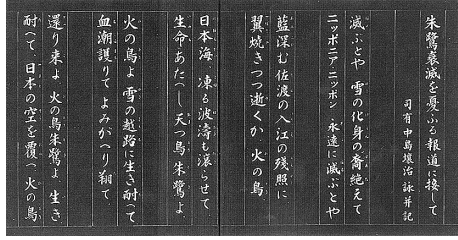 朱鷺衰滅を憂ふる報道に接して
司有中島壌治 詠并記
滅ぶとや 雪の化身の裔絶えて
ニッポニアニッポン 永遠に滅ぶとや
藍深む佐渡の入江の残照に
翼焼きつつ逝くか 火の鳥
日本海 凍る波濤も滾らせて
生命あたへし 天つ鳥朱鷺よ
火の鳥よ 雪の越路に生き耐へて
血潮護りて よみがへり翔て
還り来よ 火の鳥朱鷺よ 生き
耐へて 日本の空を覆へ 火の鳥